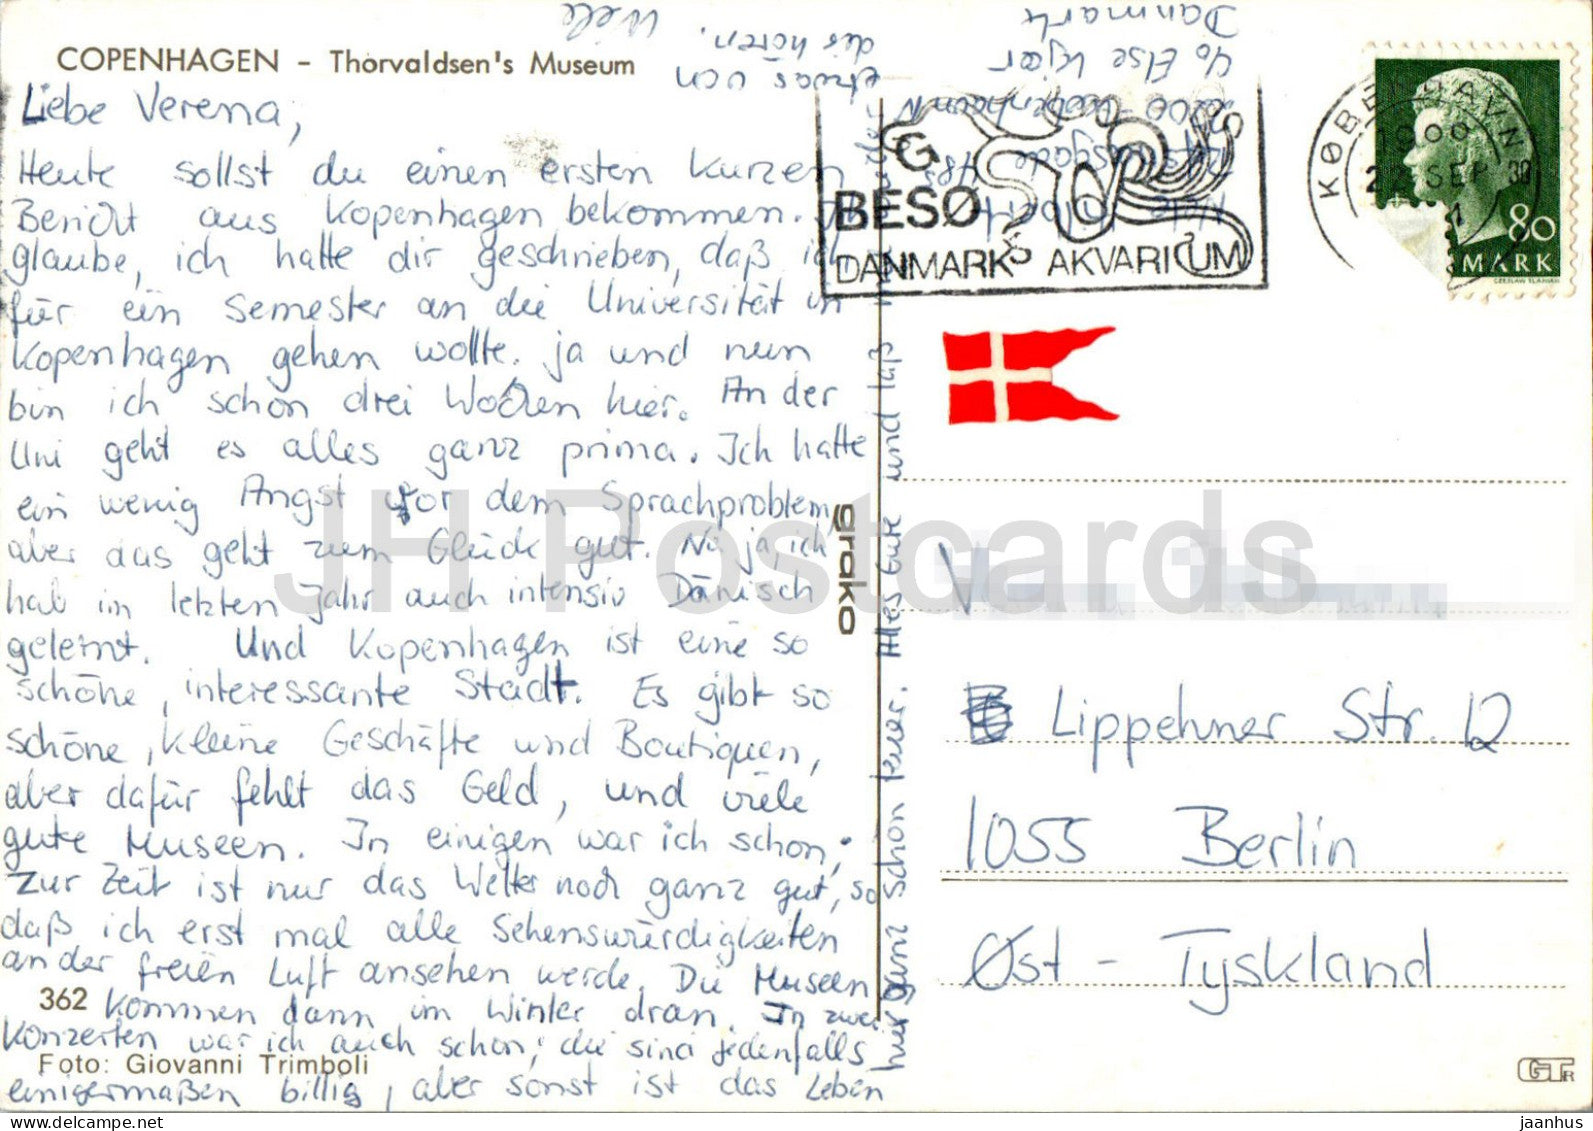 COPENHAGEN - Thorvaldsen's Museum
Liebe Verena,
Heute sollst du einen ersten kurzen
Bericht aus Kopenhagen bekommen. Ich
glaube, ich hatte dir geschrieben, daß ich
für ein Semester an die Universität in
Kopenhagen gehen wollte. ja und nun
bin ich schon drei Wochen hier. An der
Uni geht es alles ganz prima. Ich hatte
ein wenig Angst vor dem Sprachproblem,
aber das geht zum Glück gut. Na ja, ich
hab im letzten Jahr auch intensiv Dänisch
gelernt. Und Kopenhagen ist eine so
schöne, interessante Stadt. Es gibt so
schöne, kleine Geschäfte und Boutiquen,
aber dafür fehlt das Geld, und viele
gute Museen. In einigen war ich schon;
zur Zeit ist nur das Wetter noch ganz gut, so
daß ich erst mal alle Sehenswürdigkeiten
an der freien Luft ansehen werde. Die Museen
kommen dann im Winter dran. In zwei
Konzerten war ich auch schon; die sind jedenfalls
einigermaßen billig, aber sonst ist das Leben
hier ganz schön teuer. Alles Gute und laß
etwas von
dir hören.
362
Foto: Giovanni Trimboli
grako
2200 Kopenhagen N
c/o Else Kjær
Danmark
BESØG
DANMARKS AKVARIUM
KØBENHAVN
1900
22 SEP
80
DANMARK
CZESLAW SLANIA
V
Lippehner Str. 12
1055 Berlin
Øst - Tyskland
GTR
JH Postcards
www.delcampe.net
jaanhus